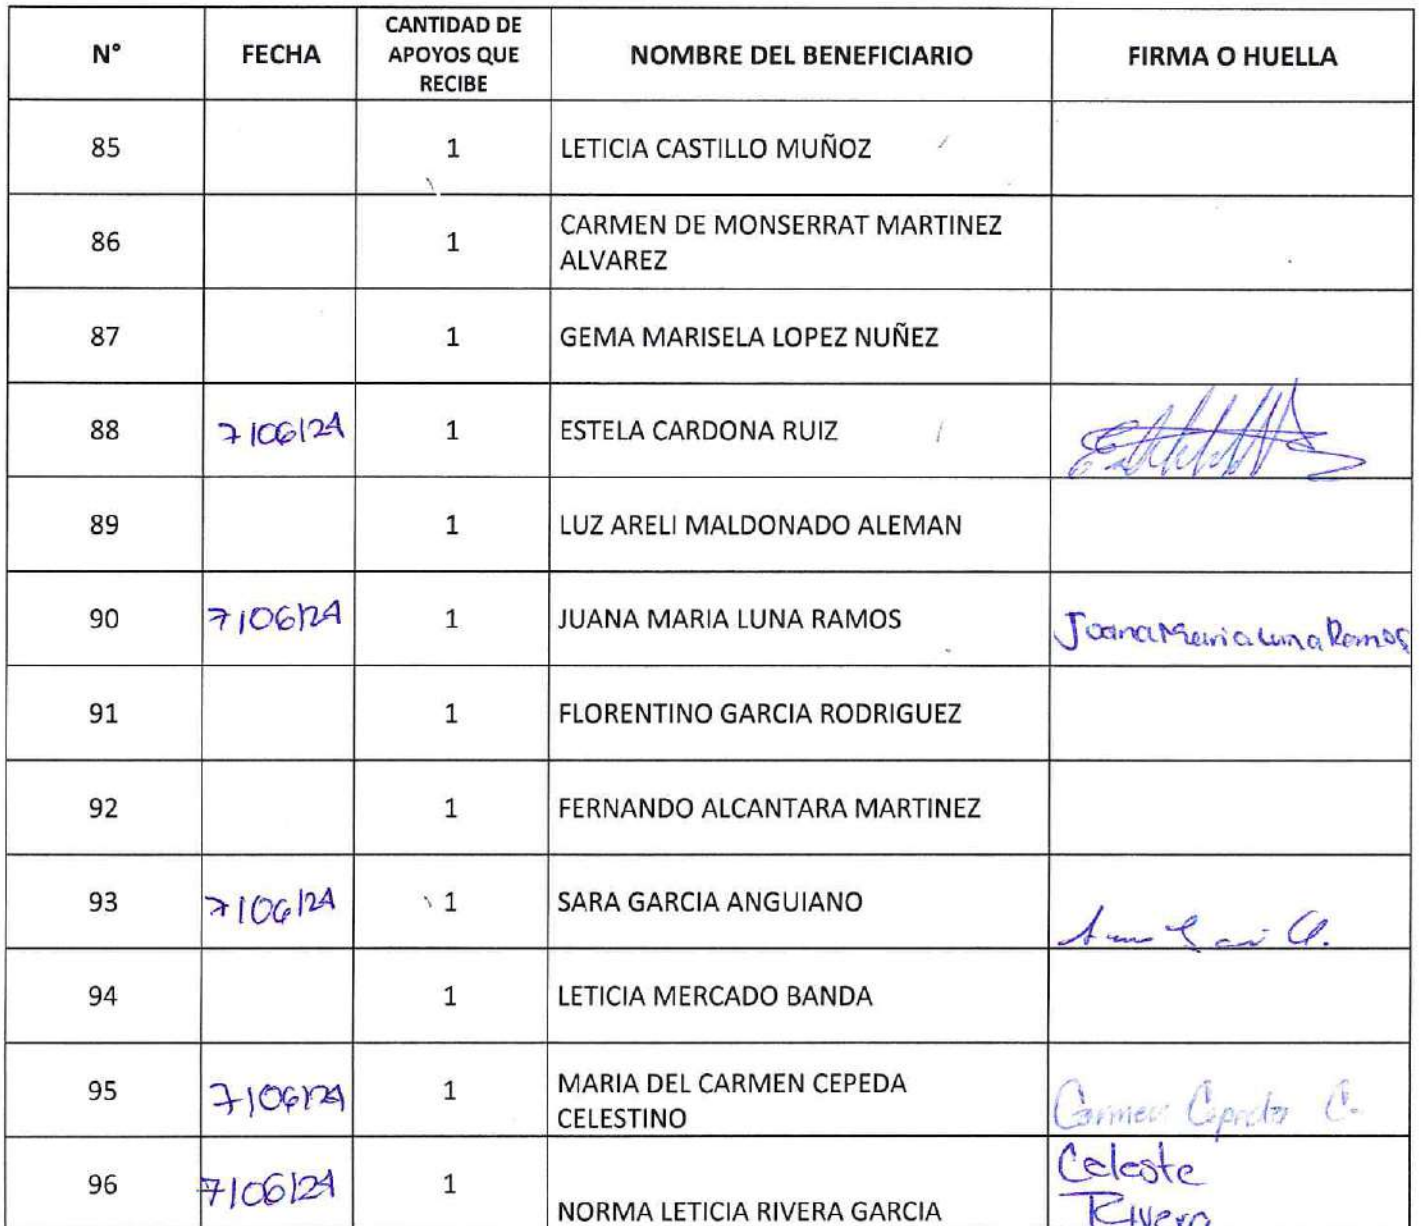 N° FECHA CANTIDAD DE APOYOS QUE RECIBE NOMBRE DEL BENEFICIARIO FIRMA O HUELLA
85 1 LETICIA CASTILLO MUÑOZ
86 1 CARMEN DE MONSERRAT MARTINEZ
ALVAREZ
87 1 GEMA MARISELA LOPEZ NUÑEZ
88 7/06/24 1 ESTELA CARDONA RUIZ
89 1 LUZ ARELI MALDONADO ALEMAN
90 7/06/24 1 JUANA MARIA LUNA RAMOS Juana Maria Luna Ramos
91 1 FLORENTINO GARCIA RODRIGUEZ
92 1 FERNANDO ALCANTARA MARTINEZ
93 7/06/24 1 SARA GARCIA ANGUIANO
94 1 LETICIA MERCADO BANDA
95 7/06/24 1 MARIA DEL CARMEN CEPEDA
CELESTINO Carmen Cepeda C.
96 7/06/24 1 NORMA LETICIA RIVERA GARCIA Celeste
Rivera